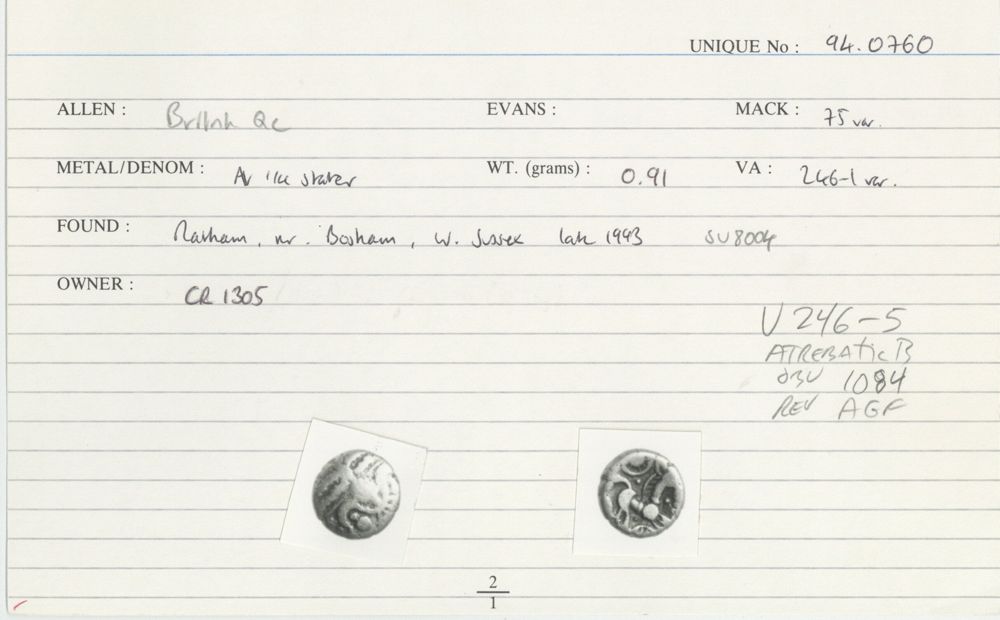 UNIQUE No : 94.0760
ALLEN : British Qc EVANS : MACK : 75 var.
METAL/DENOM : AV 1/4 stater WT. (grams) : 0.91 VA : 246-1 var.
FOUND : Ratham, nr. Bosham, W. Sussex late 1993 SU8004
OWNER : CR 1305
V 246-5
ATREBATIC B
OBV 1084
REV AGF
2
1